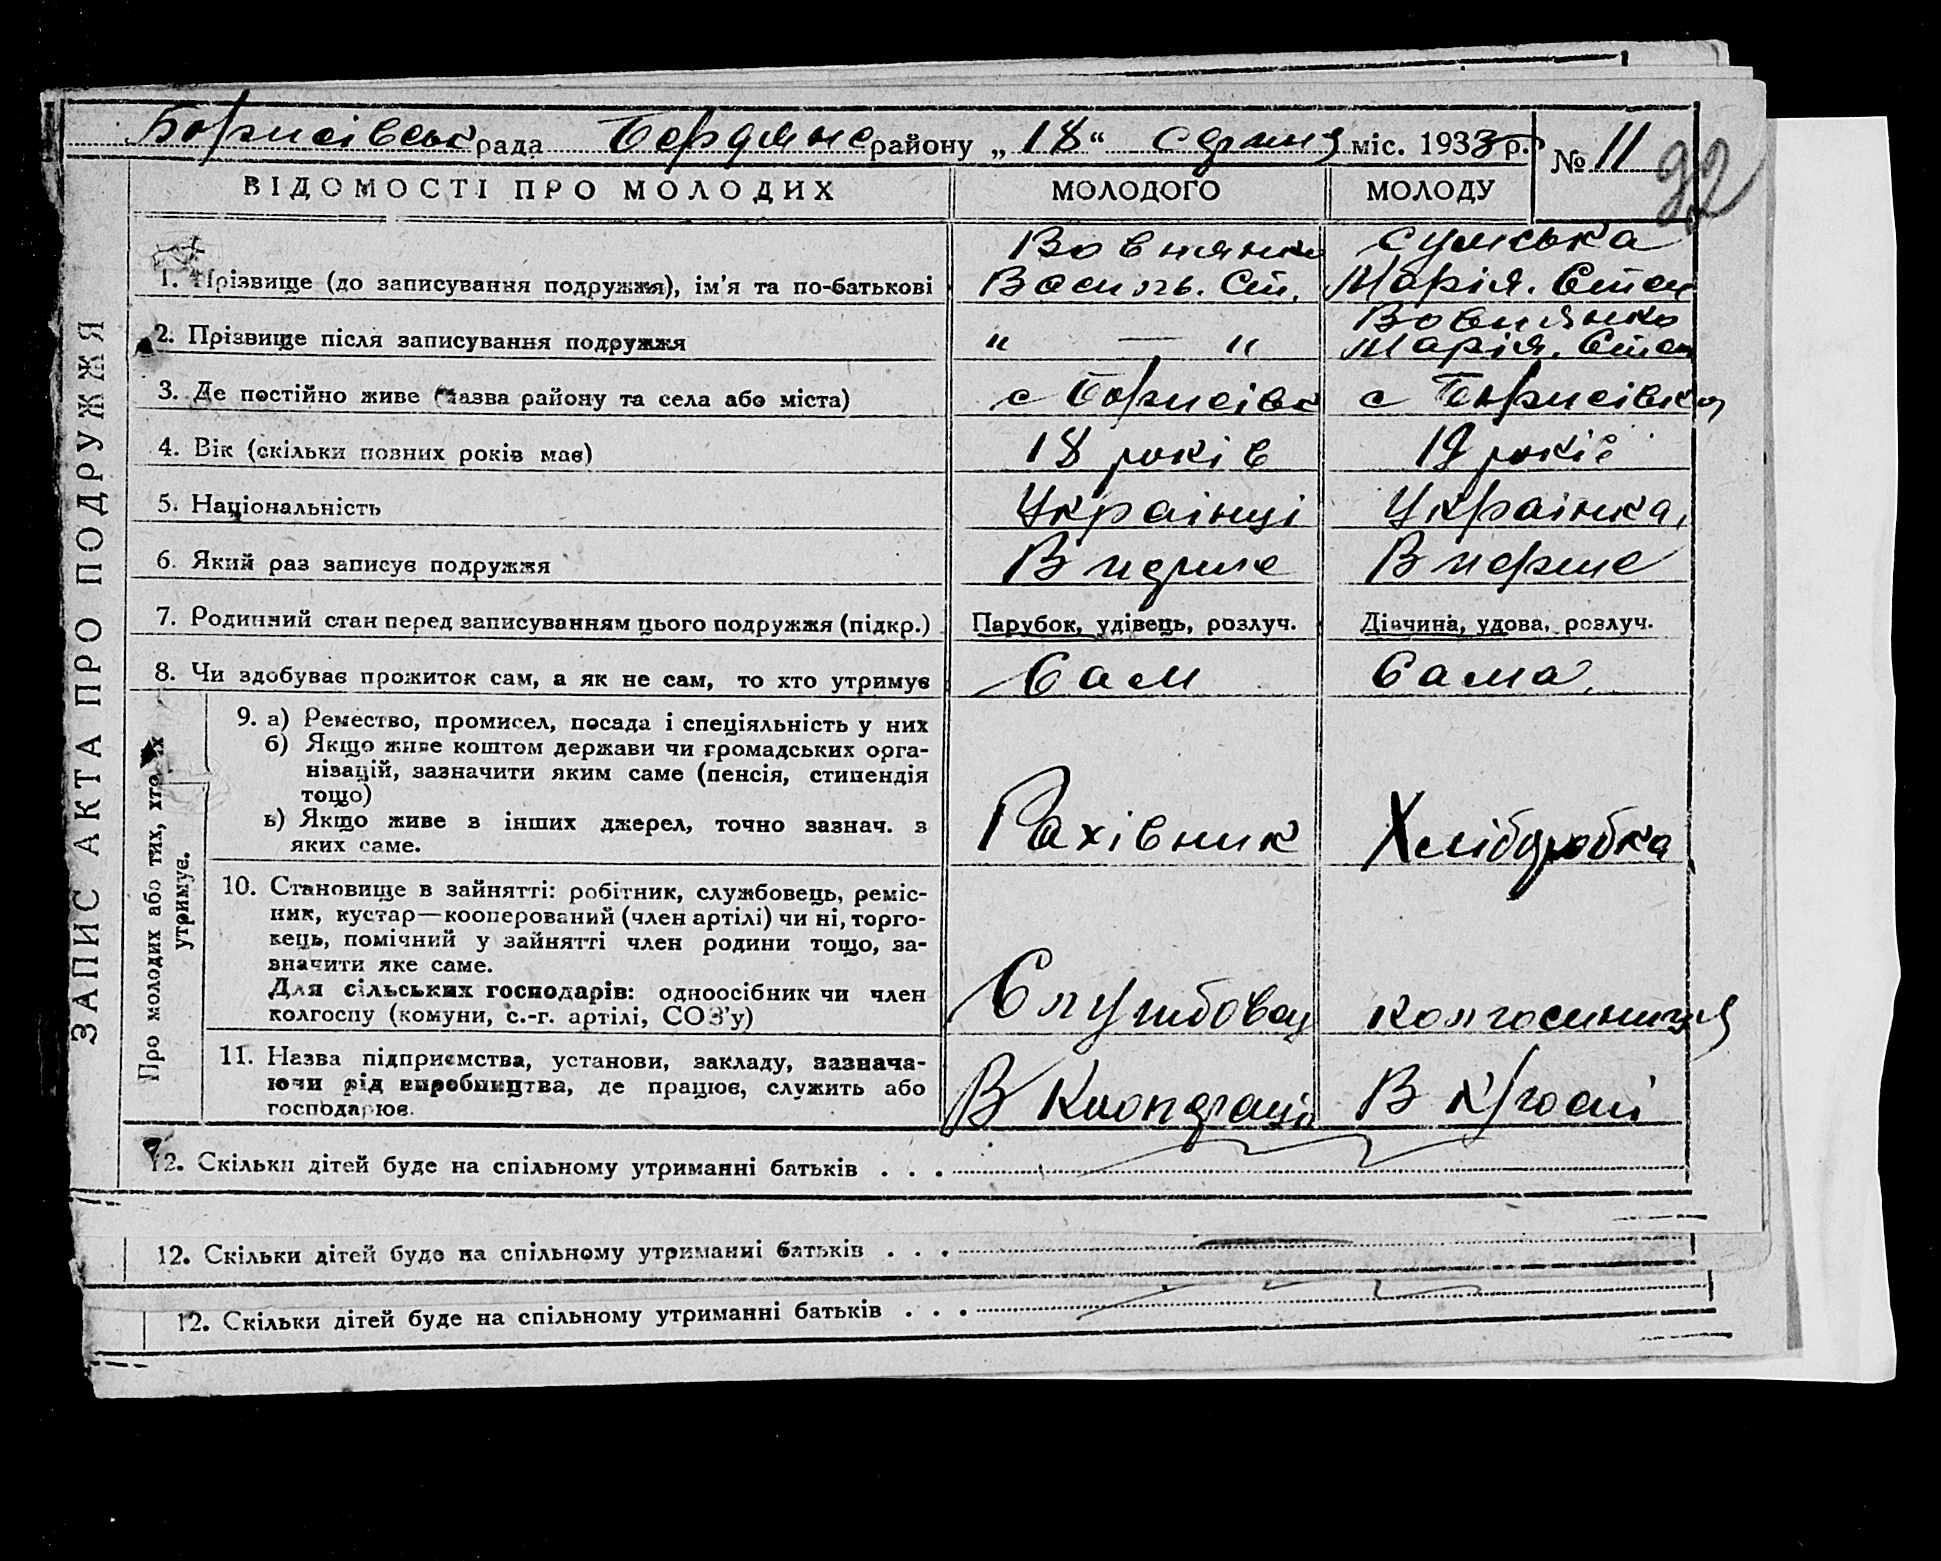 Борисівськ рада Бердянс району „ 18 “ серпня міс. 1933 р. № 11
92
ВІДОМОСТІ ПРО МОЛОДИХ МОЛОДОГО МОЛОДУ
Вовнянко Сумська
1. Прізвище (до записування подружжя), ім'я та по-батькові Василь. Ст. Марія. Степ
Вовнянко
2. Прізвище після записування подружжя " — " Марія. Степ
3. Де постійно живе (назва району та села або міста) с Борисівк с Борисівка
4. Вік (скільки повних років має) 18 років 19 років
5. Національність Українці Українка,
6. Який раз записує подружжя Вперше Вперше
7. Родинний стан перед записуванням цього подружжя (підкр.) Парубок, удівець, розлуч. Дівчина, удова, розлуч.
8. Чи здобуває прожиток сам, а як не сам, то хто утримує Сам Сама
9. а) Ремество, промисел, посада і спеціяльність у них
б) Якщо живе коштом держави чи громадських орга-
нізацій, зазначити яким саме (пенсія, стипендія
тощо)
в) Якщо живе з інших джерел, точно зазнач. з
яких саме. Рахівник Хліборобка
10. Становище в зайнятті: робітник, службовець, реміс-
ник, кустар—кооперований (член артілі) чи ні, торго-
вець, помічний у зайнятті член родини тощо, за-
значити яке саме.
Для сільських господарів: одноосібник чи член
колгоспу (комуни, с.-г. артілі, СОЗ'у) Службовец колгоспниця
11. Назва підприємства, установи, закладу, зазнача-
ючи рід виробництва, де працює, служить або
господарює. В Кооперації В К/госпі
12. Скільки дітей буде на спільному утриманні батьків . . .
12. Скільки дітей буде на спільному утриманні батьків . . .
12. Скільки дітей буде на спільному утриманні батьків . . .
ЗАПИС АКТА ПРО ПОДРУЖЖЯ
Про молодих або тих, хто їх
утримує.